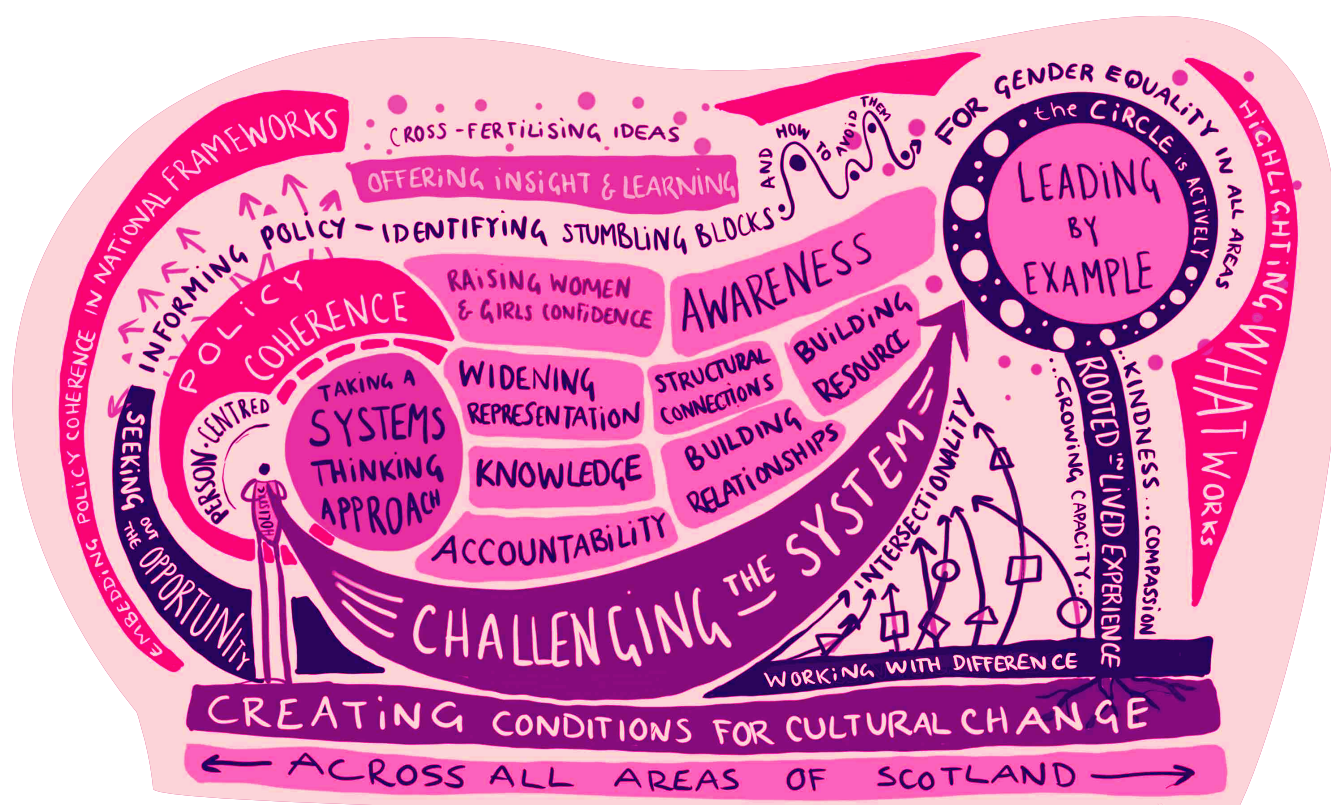 EMBEDDING POLICY COHERENCE IN NATIONAL FRAMEWORKS
CROSS-FERTILISING IDEAS
OFFERING INSIGHT & LEARNING
INFORMING POLICY - IDENTIFYING STUMBLING BLOCKS
AND HOW TO AVOID THEM
FOR GENDER EQUALITY IN ALL AREAS
the CIRCLE IS ACTIVELY
LEADING
BY
EXAMPLE
HIGHLIGHTING WHAT WORKS
POLICY
COHERENCE
PERSON-CENTRED
HOLISTIC
SEEKING OUT
THE OPPORTUNITY
TAKING A
SYSTEMS
THINKING
APPROACH
RAISING WOMEN
& GIRLS CONFIDENCE
AWARENESS
WIDENING
REPRESENTATION
STRUCTURAL
CONNECTIONS
BUILDING
RESOURCE
KNOWLEDGE
BUILDING
RELATIONSHIPS
ACCOUNTABILITY
CHALLENGING THE SYSTEM
INTERSECTIONALITY
...GROWING CAPACITY...
ROOTED IN LIVED EXPERIENCE
...KINDNESS...COMPASSION
WORKING WITH DIFFERENCE
CREATING CONDITIONS FOR CULTURAL CHANGE
ACROSS ALL AREAS OF SCOTLAND